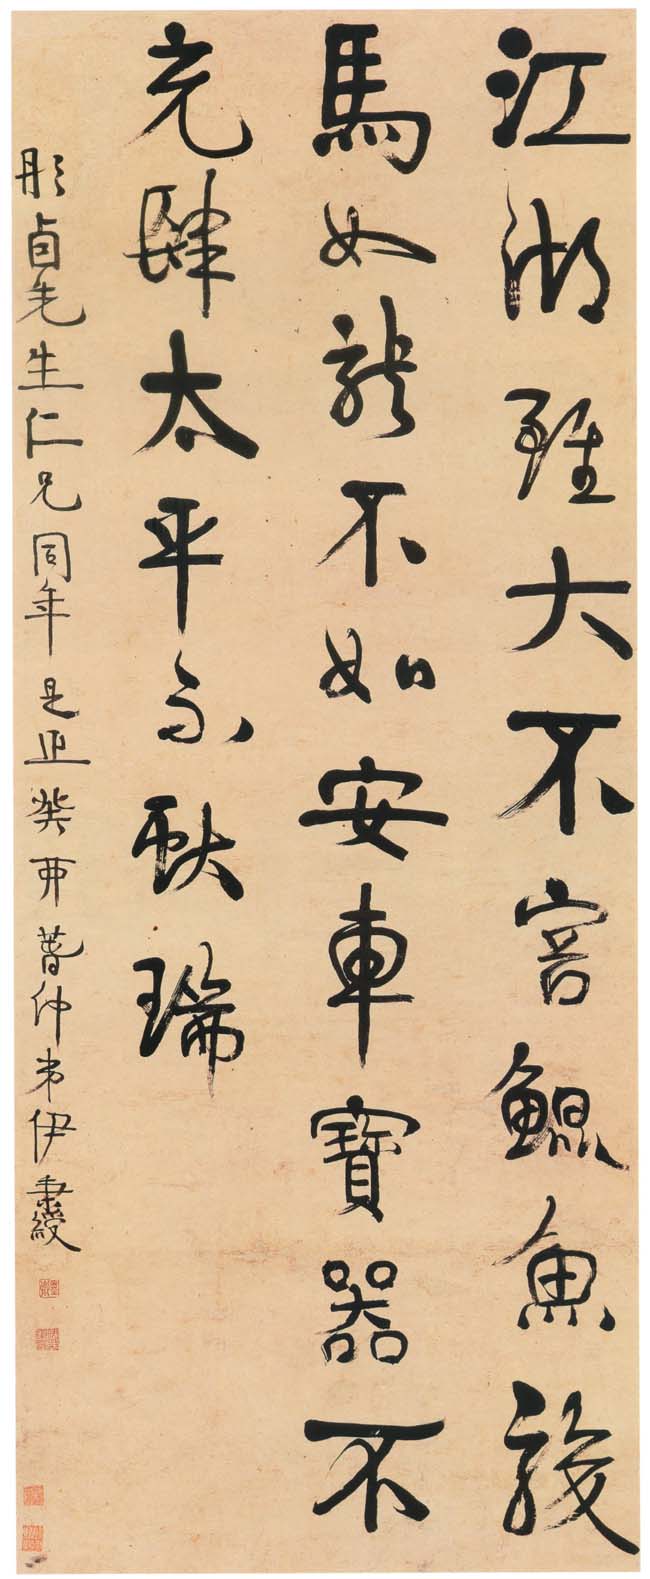 江湖雖大不容鯤魚駿
馬如龍不如安車寶器不
充肆太平瑞
彤卣先生仁兄同年是正癸酉萅仲弟伊秉綬